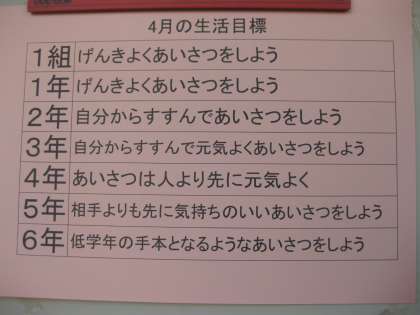 4月の生活目標
1組 げんきよくあいさつをしよう
1年 げんきよくあいさつをしよう
2年 自分からすすんであいさつをしよう
3年 自分からすすんで元気よくあいさつをしよう
4年 あいさつは人より先に元気よく
5年 相手よりも先に気持ちのいいあいさつをしよう
6年 低学年の手本となるようなあいさつをしよう